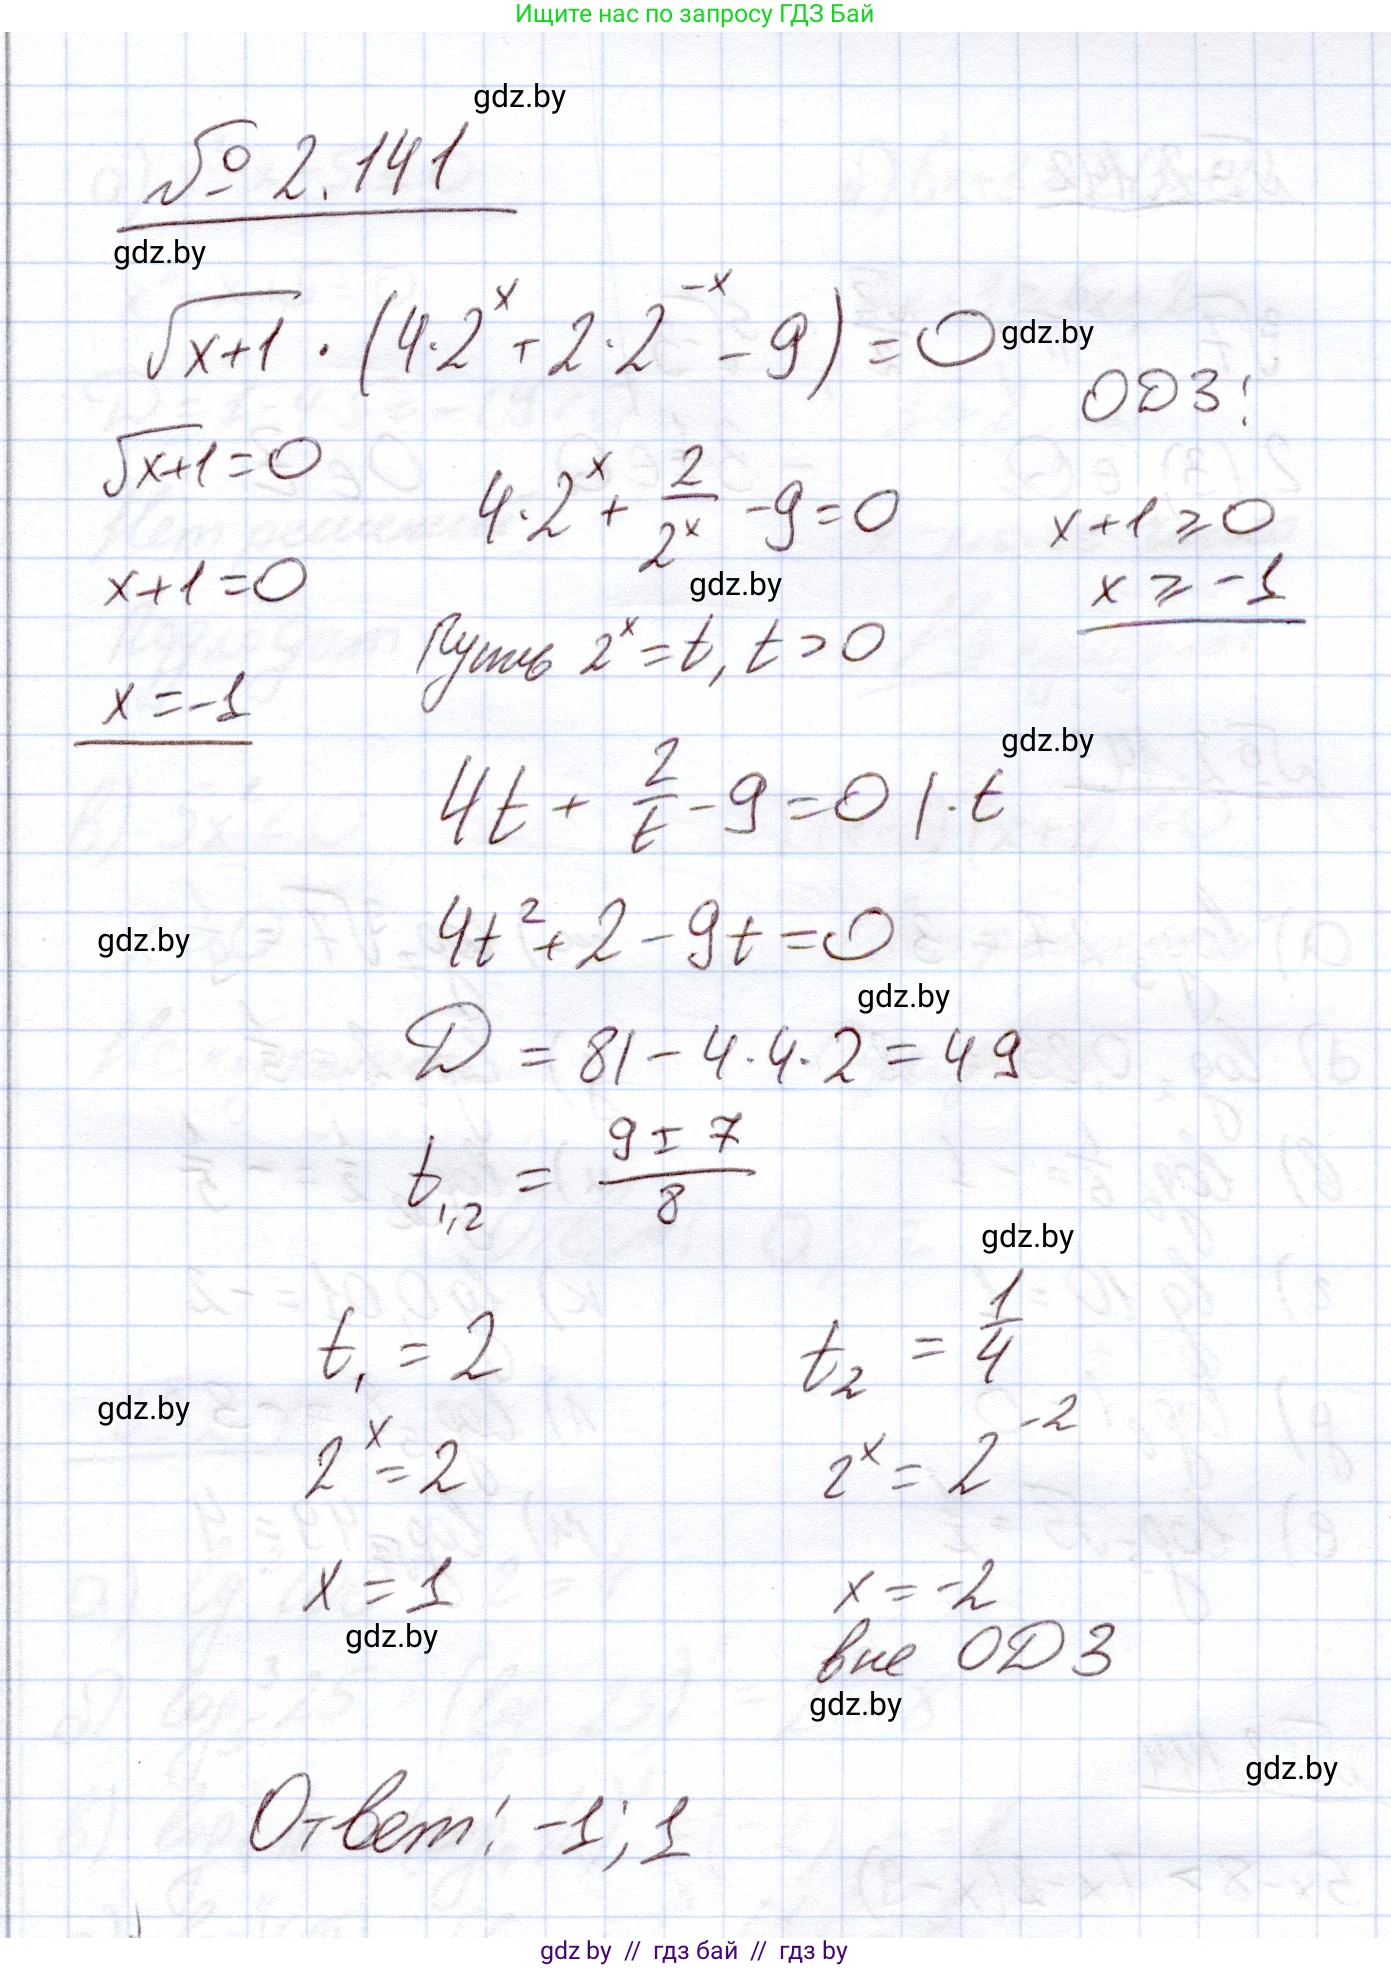 Ищите нас по запросу ГДЗ Бай
gdz.by
№ 2.141
gdz.by
√(x+1) · (4·2^x + 2·2^(-x) - 9) = 0
gdz.by
ОДЗ:
√(x+1) = 0
4·2^x + 2/2^x - 9 = 0
x+1 ≥ 0
x+1 = 0
gdz.by
x ≥ -1
Пусть 2^x = t, t > 0
x = -1
gdz.by
4t + 2/t - 9 = 0 | · t
gdz.by
4t² + 2 - 9t = 0
gdz.by
D = 81 - 4·4·2 = 49
t₁,₂ = (9 ± 7)/8
gdz.by
t₁ = 2
t₂ = 1/4
gdz.by
2^x = 2
2^x = 2^(-2)
x = 1
x = -2
gdz.by
вне ОДЗ
gdz.by
gdz.by
Ответ: -1; 1
gdz by // гдз бай // гдз by